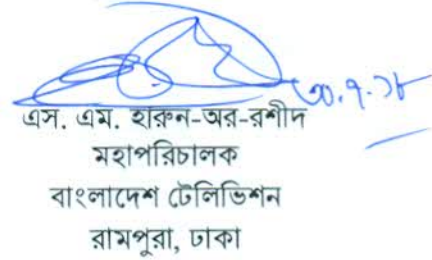 ৩০.৭.১৮
এস. এম. হারুন-অর-রশীদ
মহাপরিচালক
বাংলাদেশ টেলিভিশন
রামপুরা, ঢাকা